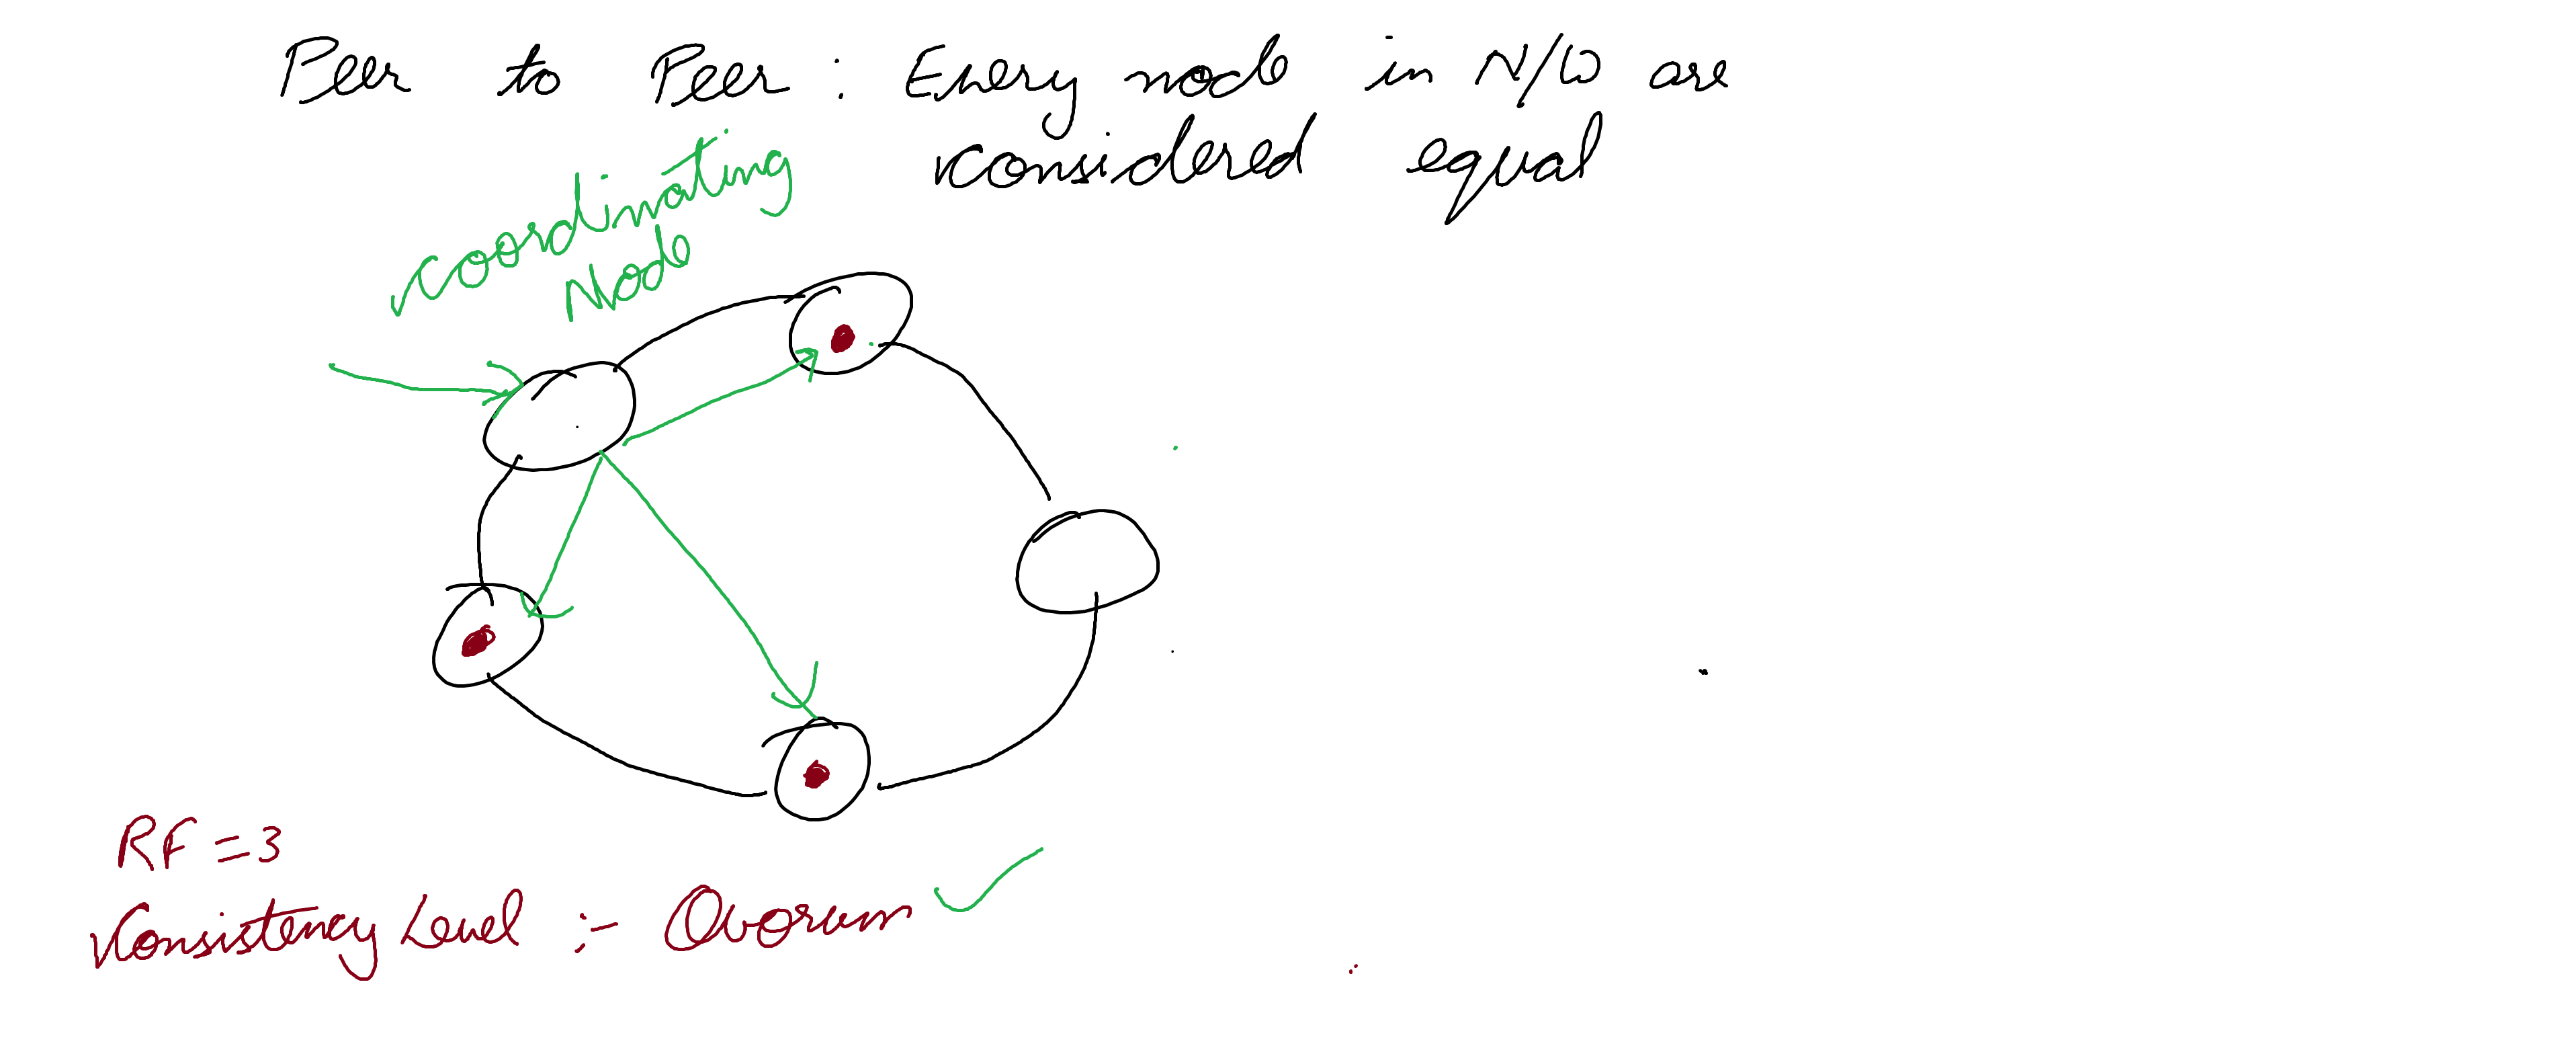 Peer to Peer : Every node in N/W are
considered equal
coordinating
Node
RF = 3
Consistency Level :- Quorum